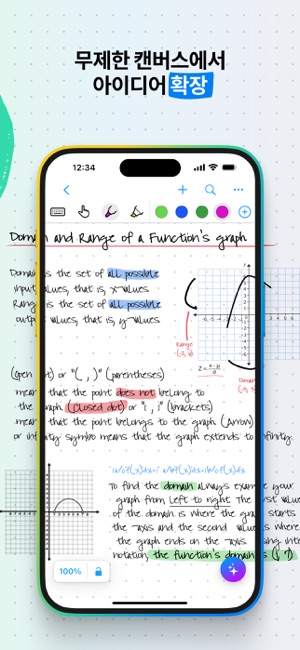 무제한 캔버스에서
아이디어 확장
12:34
Domain and Range of a Function's graph
Domain is the set of all possible
input values, that is, x-values
Range is the set of all possible
output values, that is, y-values
Range
(Open dot) or "( , )" (parentheses)
mean that the point does not belong to
the graph (Closed dot) or "[ , ]" (brackets)
mean that the point belongs to the graph (Arrow)
or infinity symbo means that the graph extends to infinity.
To find the domain always examine your
graph from left to right. The first value
of the domain is where the graph starts
the x-axis and the second values is where
the graph ends on the x-axis using interval
notation, the function's domain is
100%